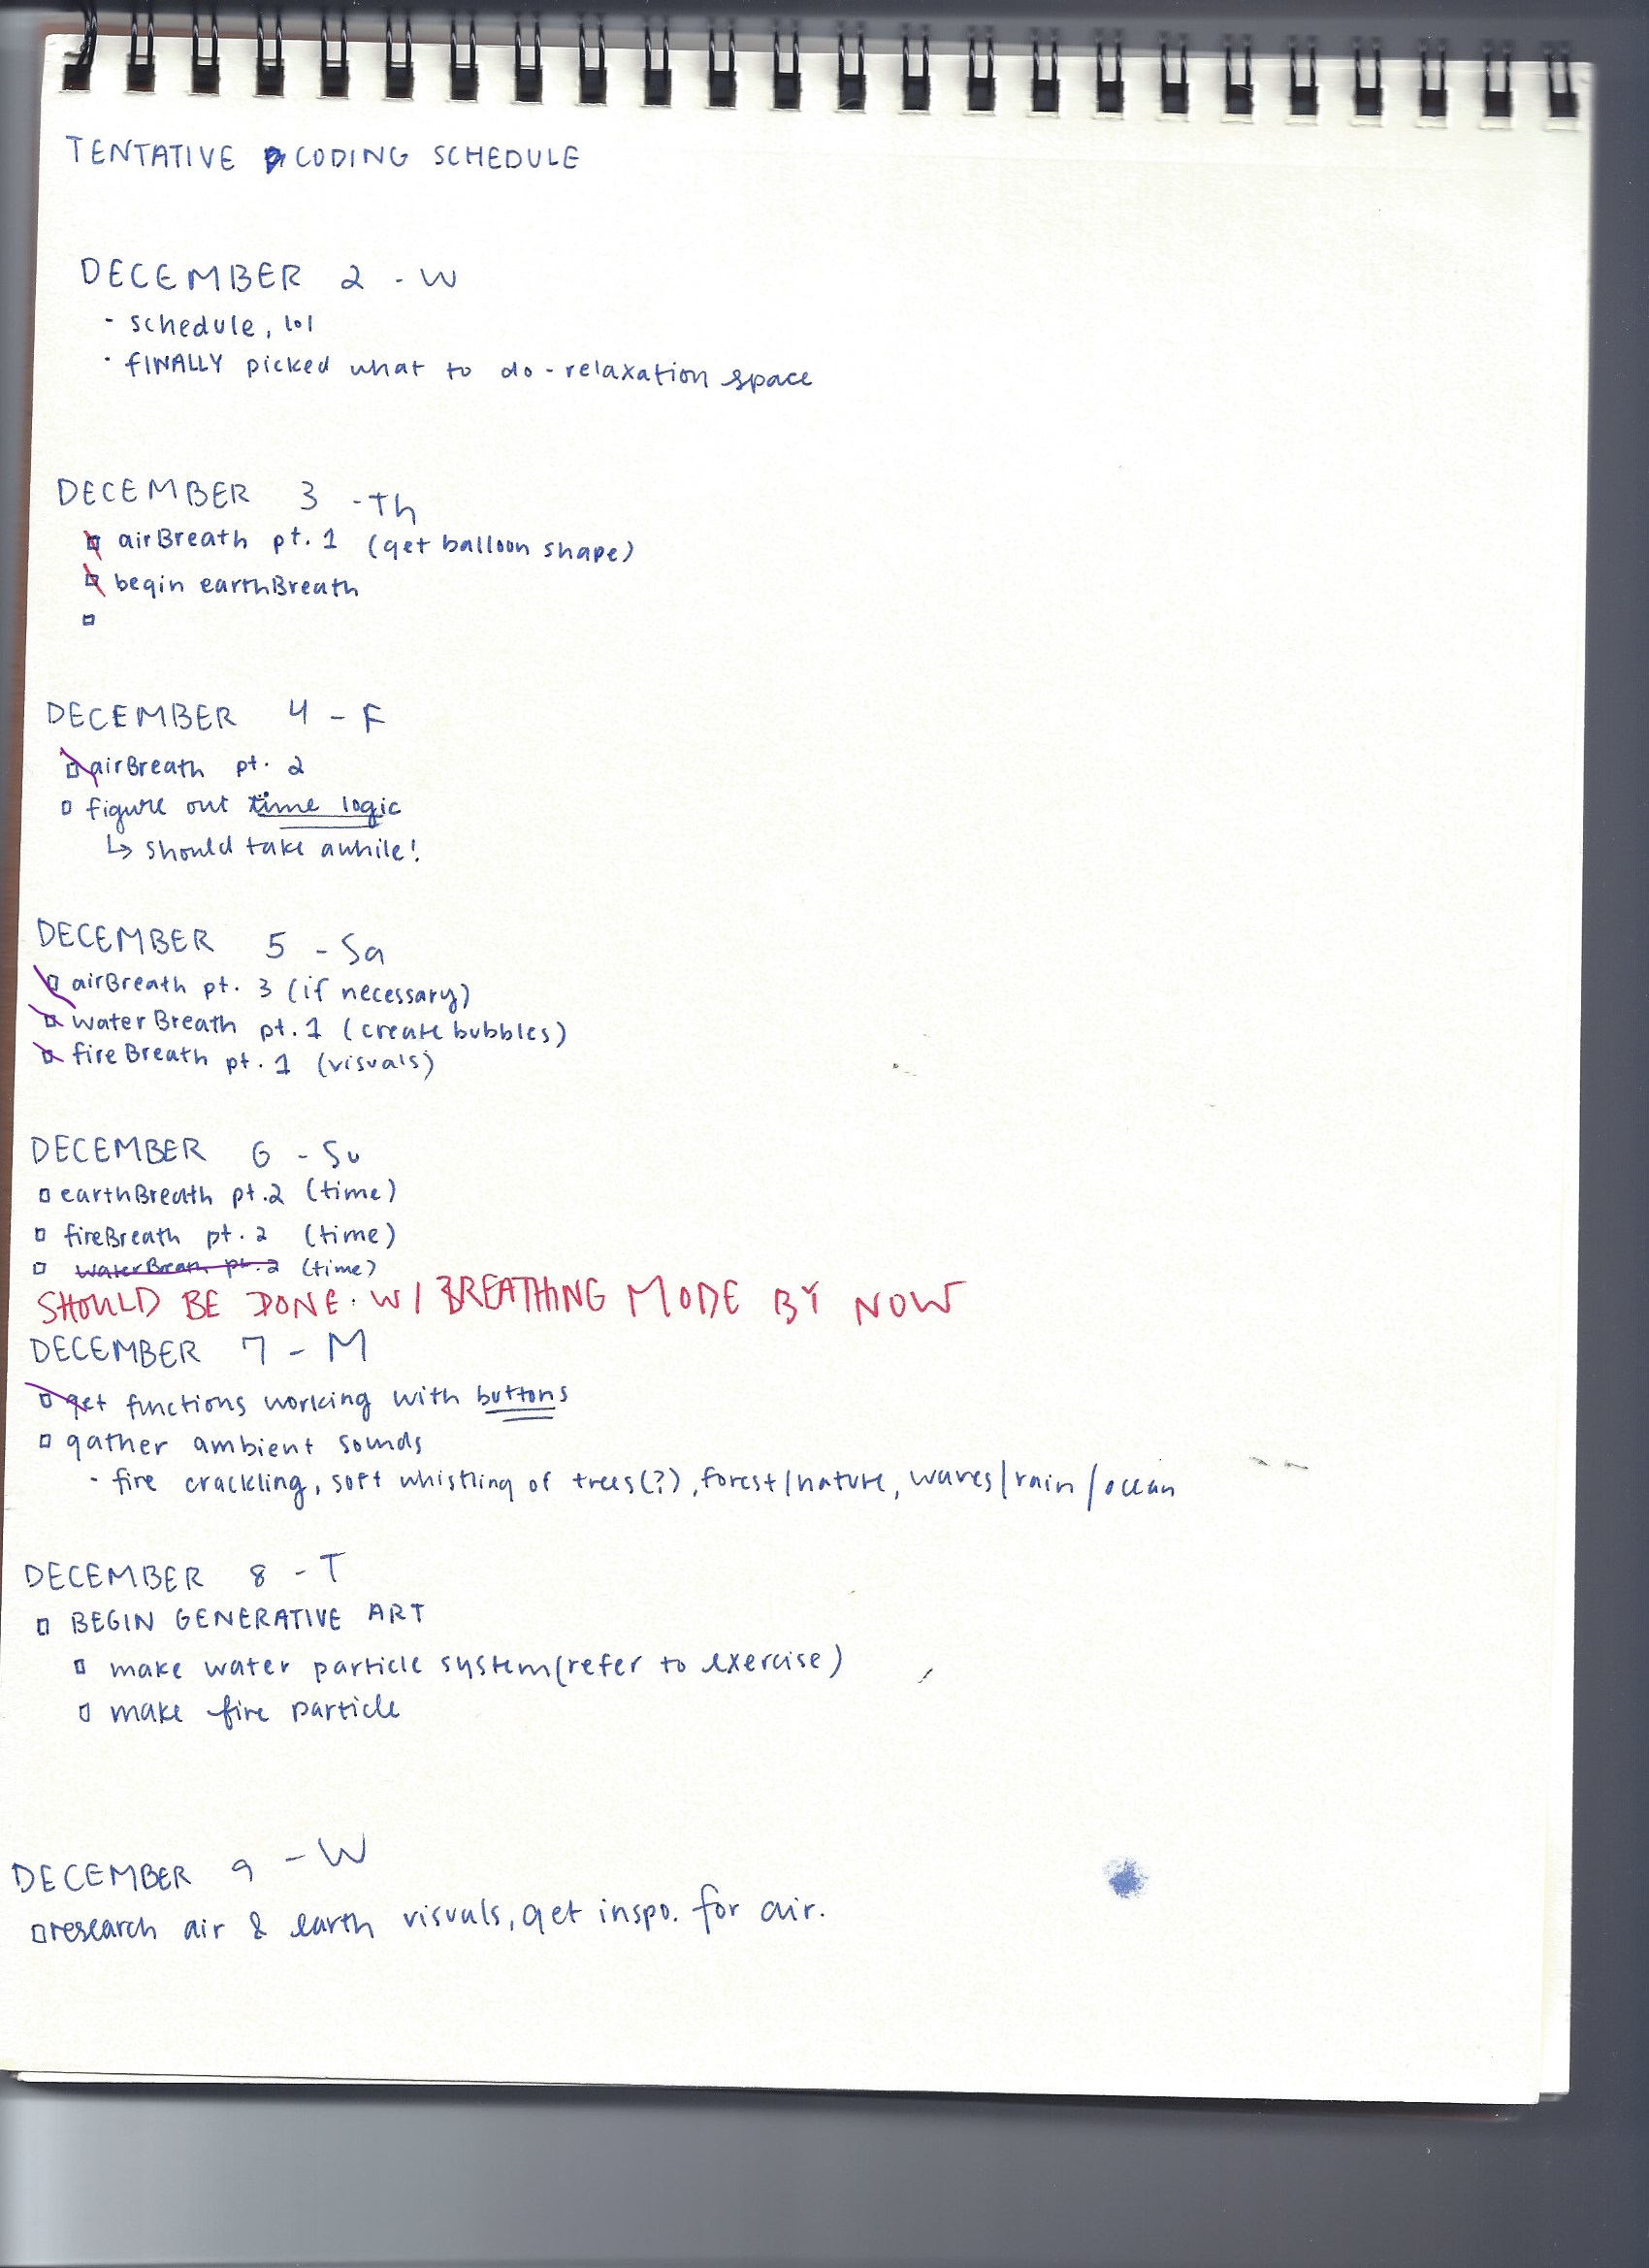 TENTATIVE CODING SCHEDULE
DECEMBER 2 - W
- schedule, lol
- FINALLY picked what to do - relaxation space
DECEMBER 3 - Th
airBreath pt. 1 (get balloon shape)
begin earthBreath
DECEMBER 4 - F
airBreath pt. 2
figure out time logic
↳ should take awhile!
DECEMBER 5 - Sa
airBreath pt. 3 (if necessary)
waterBreath pt. 1 (create bubbles)
fireBreath pt. 1 (visuals)
DECEMBER 6 - Su
earthBreath pt. 2 (time)
fireBreath pt. 2 (time)
waterBreath pt. 2 (time)
SHOULD BE DONE W/ BREATHING MODE BY NOW
DECEMBER 7 - M
get functions working with buttons
gather ambient sounds
- fire crackling, soft whistling of trees(?), forest/nature, waves/rain/ocean
DECEMBER 8 - T
BEGIN GENERATIVE ART
make water particle system (refer to exercise)
make fire particle
DECEMBER 9 - W
research air & earth visuals, get inspo. for air.